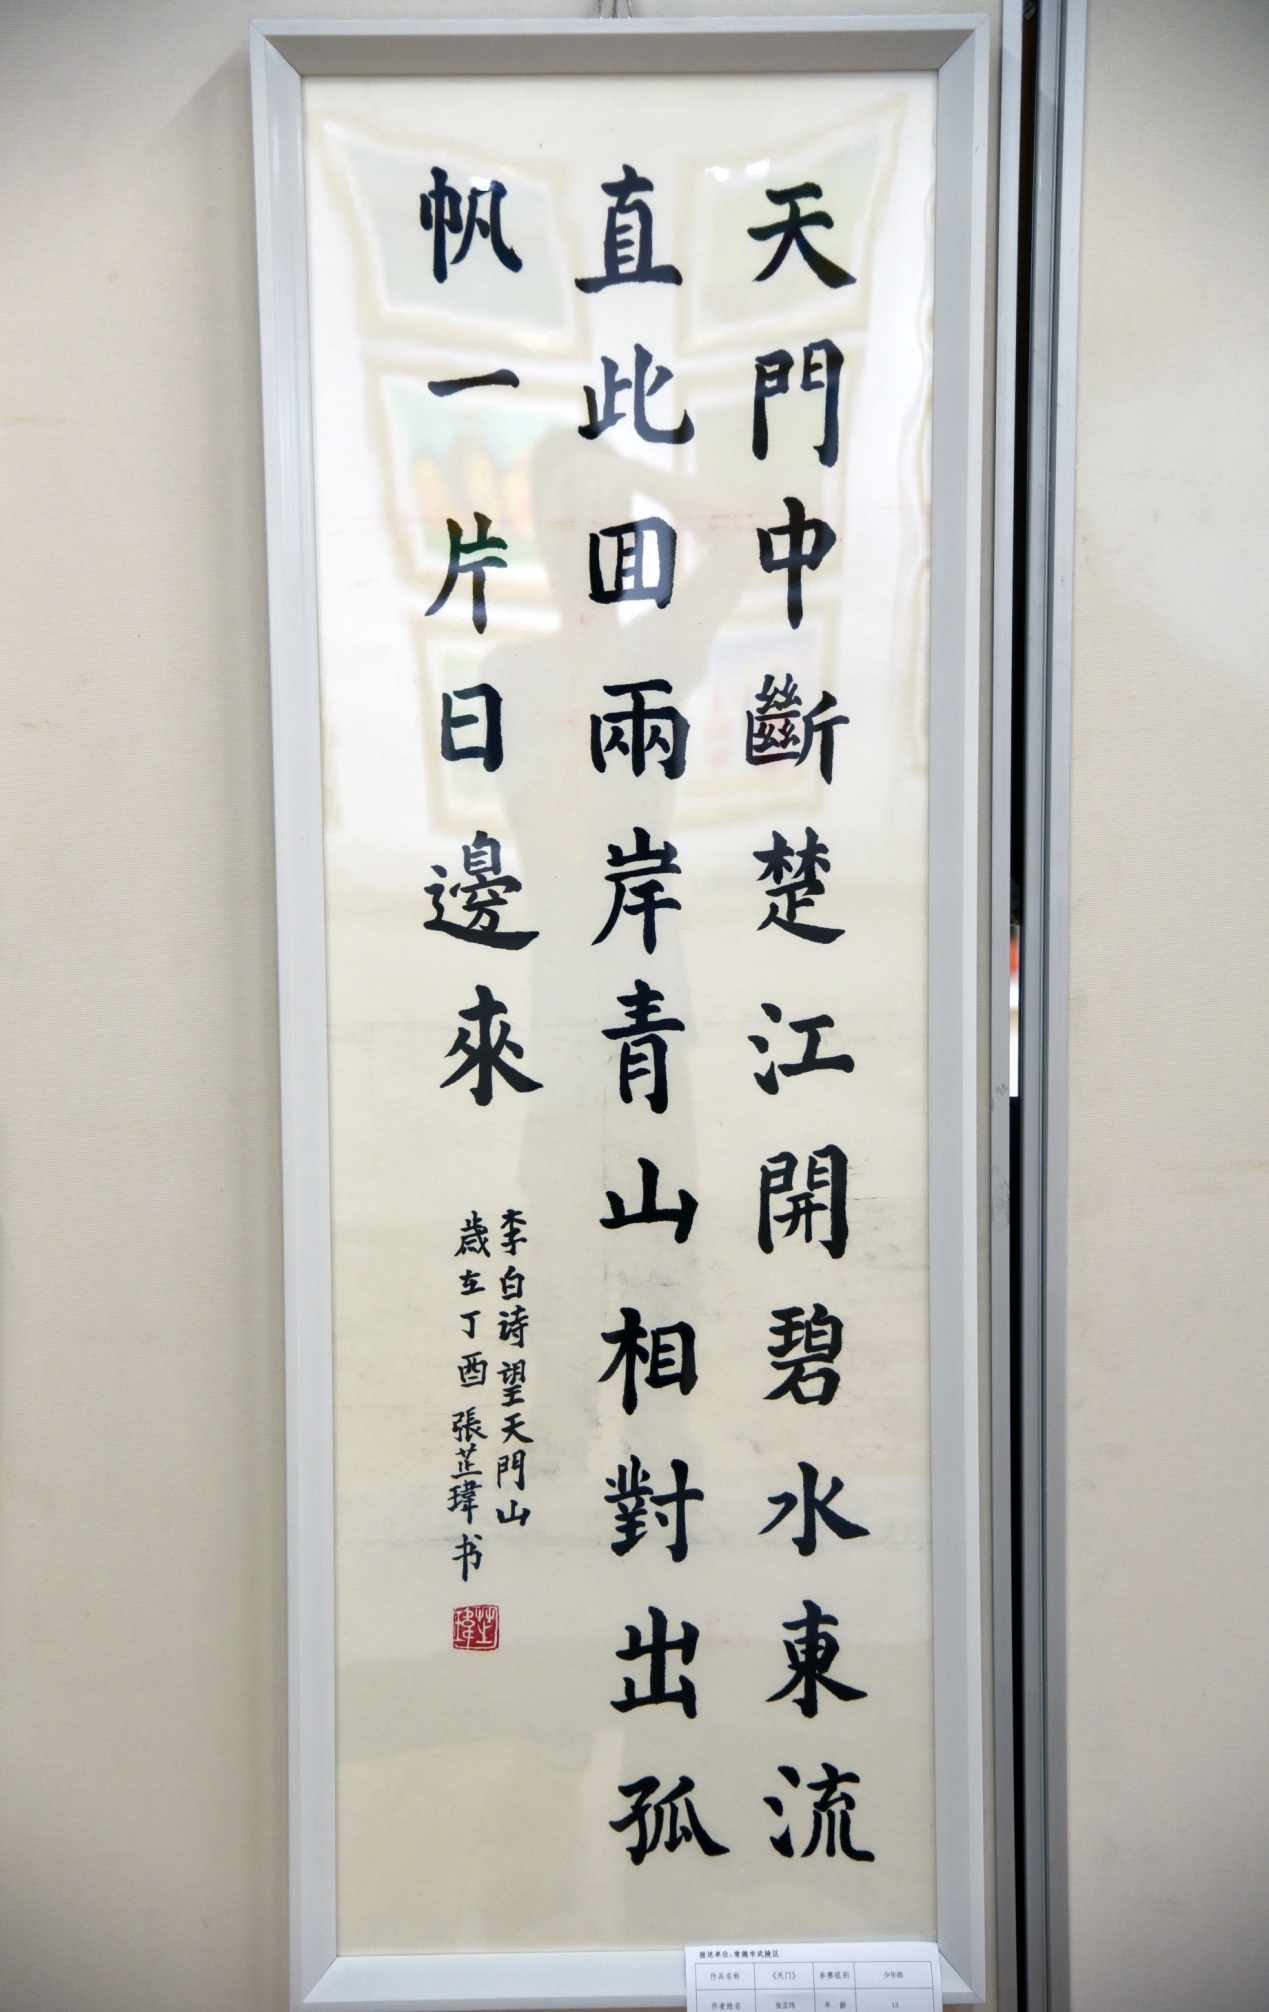 天門中斷楚江開碧水東流
直此囬兩岸青山相對出孤
帆一片日邊來
李白诗望天門山
歲在丁酉張芷瑋书
芷瑋
报送单位:常德市武陵区
作品名称 《天门》 参赛组别 少年组
作者姓名 张芷玮 年 龄 13